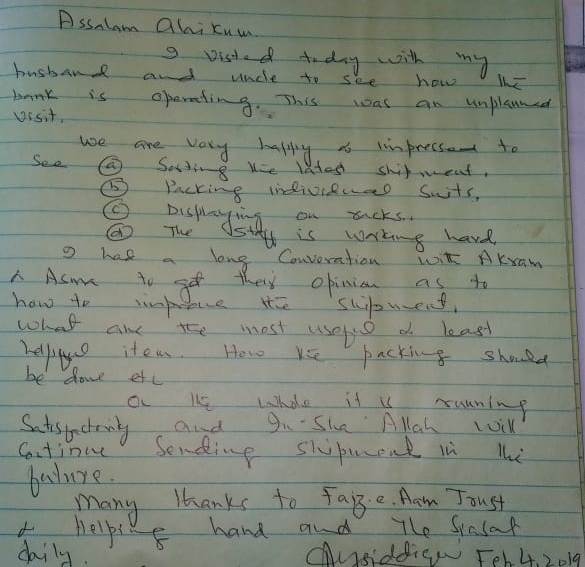 Assalam Alikum
I visted today with my
husband and uncle to see how the
bank is operating. This was an unplanned
visit.
We are very happy & impressed to
See (a) Sorting the latest shipment.
(b) Packing individual Suits.
(c) Displaying on racks..
(d) The Staff is working hard
I had a long Converation with Akram
& Asma to get their opinion as to
how to improve the shipment,
What are the most useful & least
helpful item. How the packing should
be done etc
On the whole it is running
Satisfactorily and In-Sha Allah will
Continue Sending shipment in the
future.
Many thanks to Faiz.e.Aam Trust
& Helping hand and The Siasat
daily. Feb 4, 2019